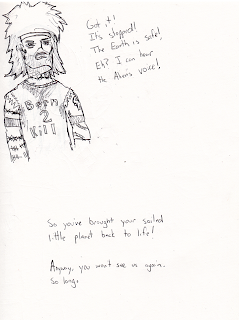 Got it!
It's stopped!
The Earth is safe!
Eh? I can hear
the Alien's voice!
Born
2
Kill
So you've brought your soiled
little planet back to life!
Anyway, you won't see us again.
So long.